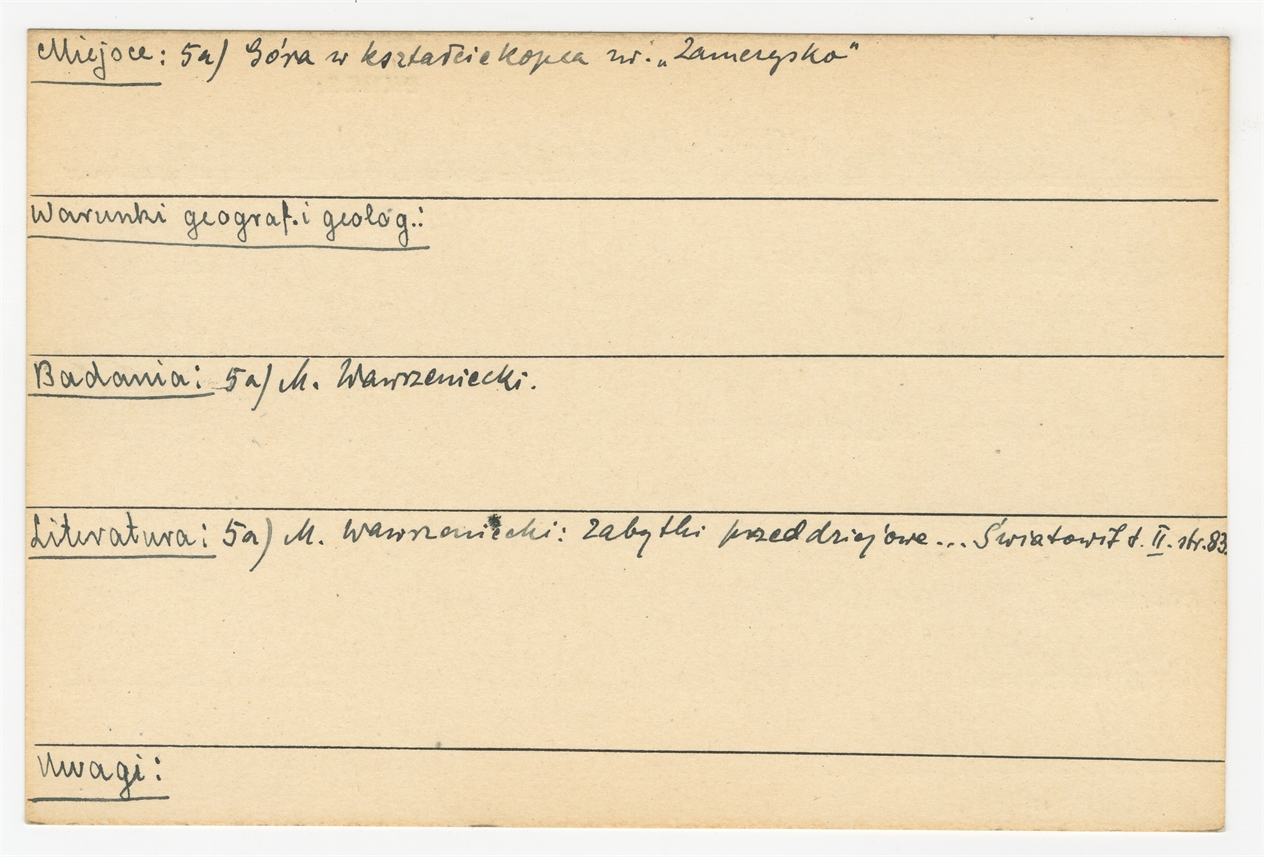 Miejsce: 5a) Góra w kształcie kopca zw. „Zamczysko"
Warunki geograf. i geolog.:
Badania: 5a) M. Wawrzeniecki.
Literatura: 5a) M. Wawrzeniecki: Zabytki przeddziejowe... Światowit t. II. str. 83.
Uwagi: